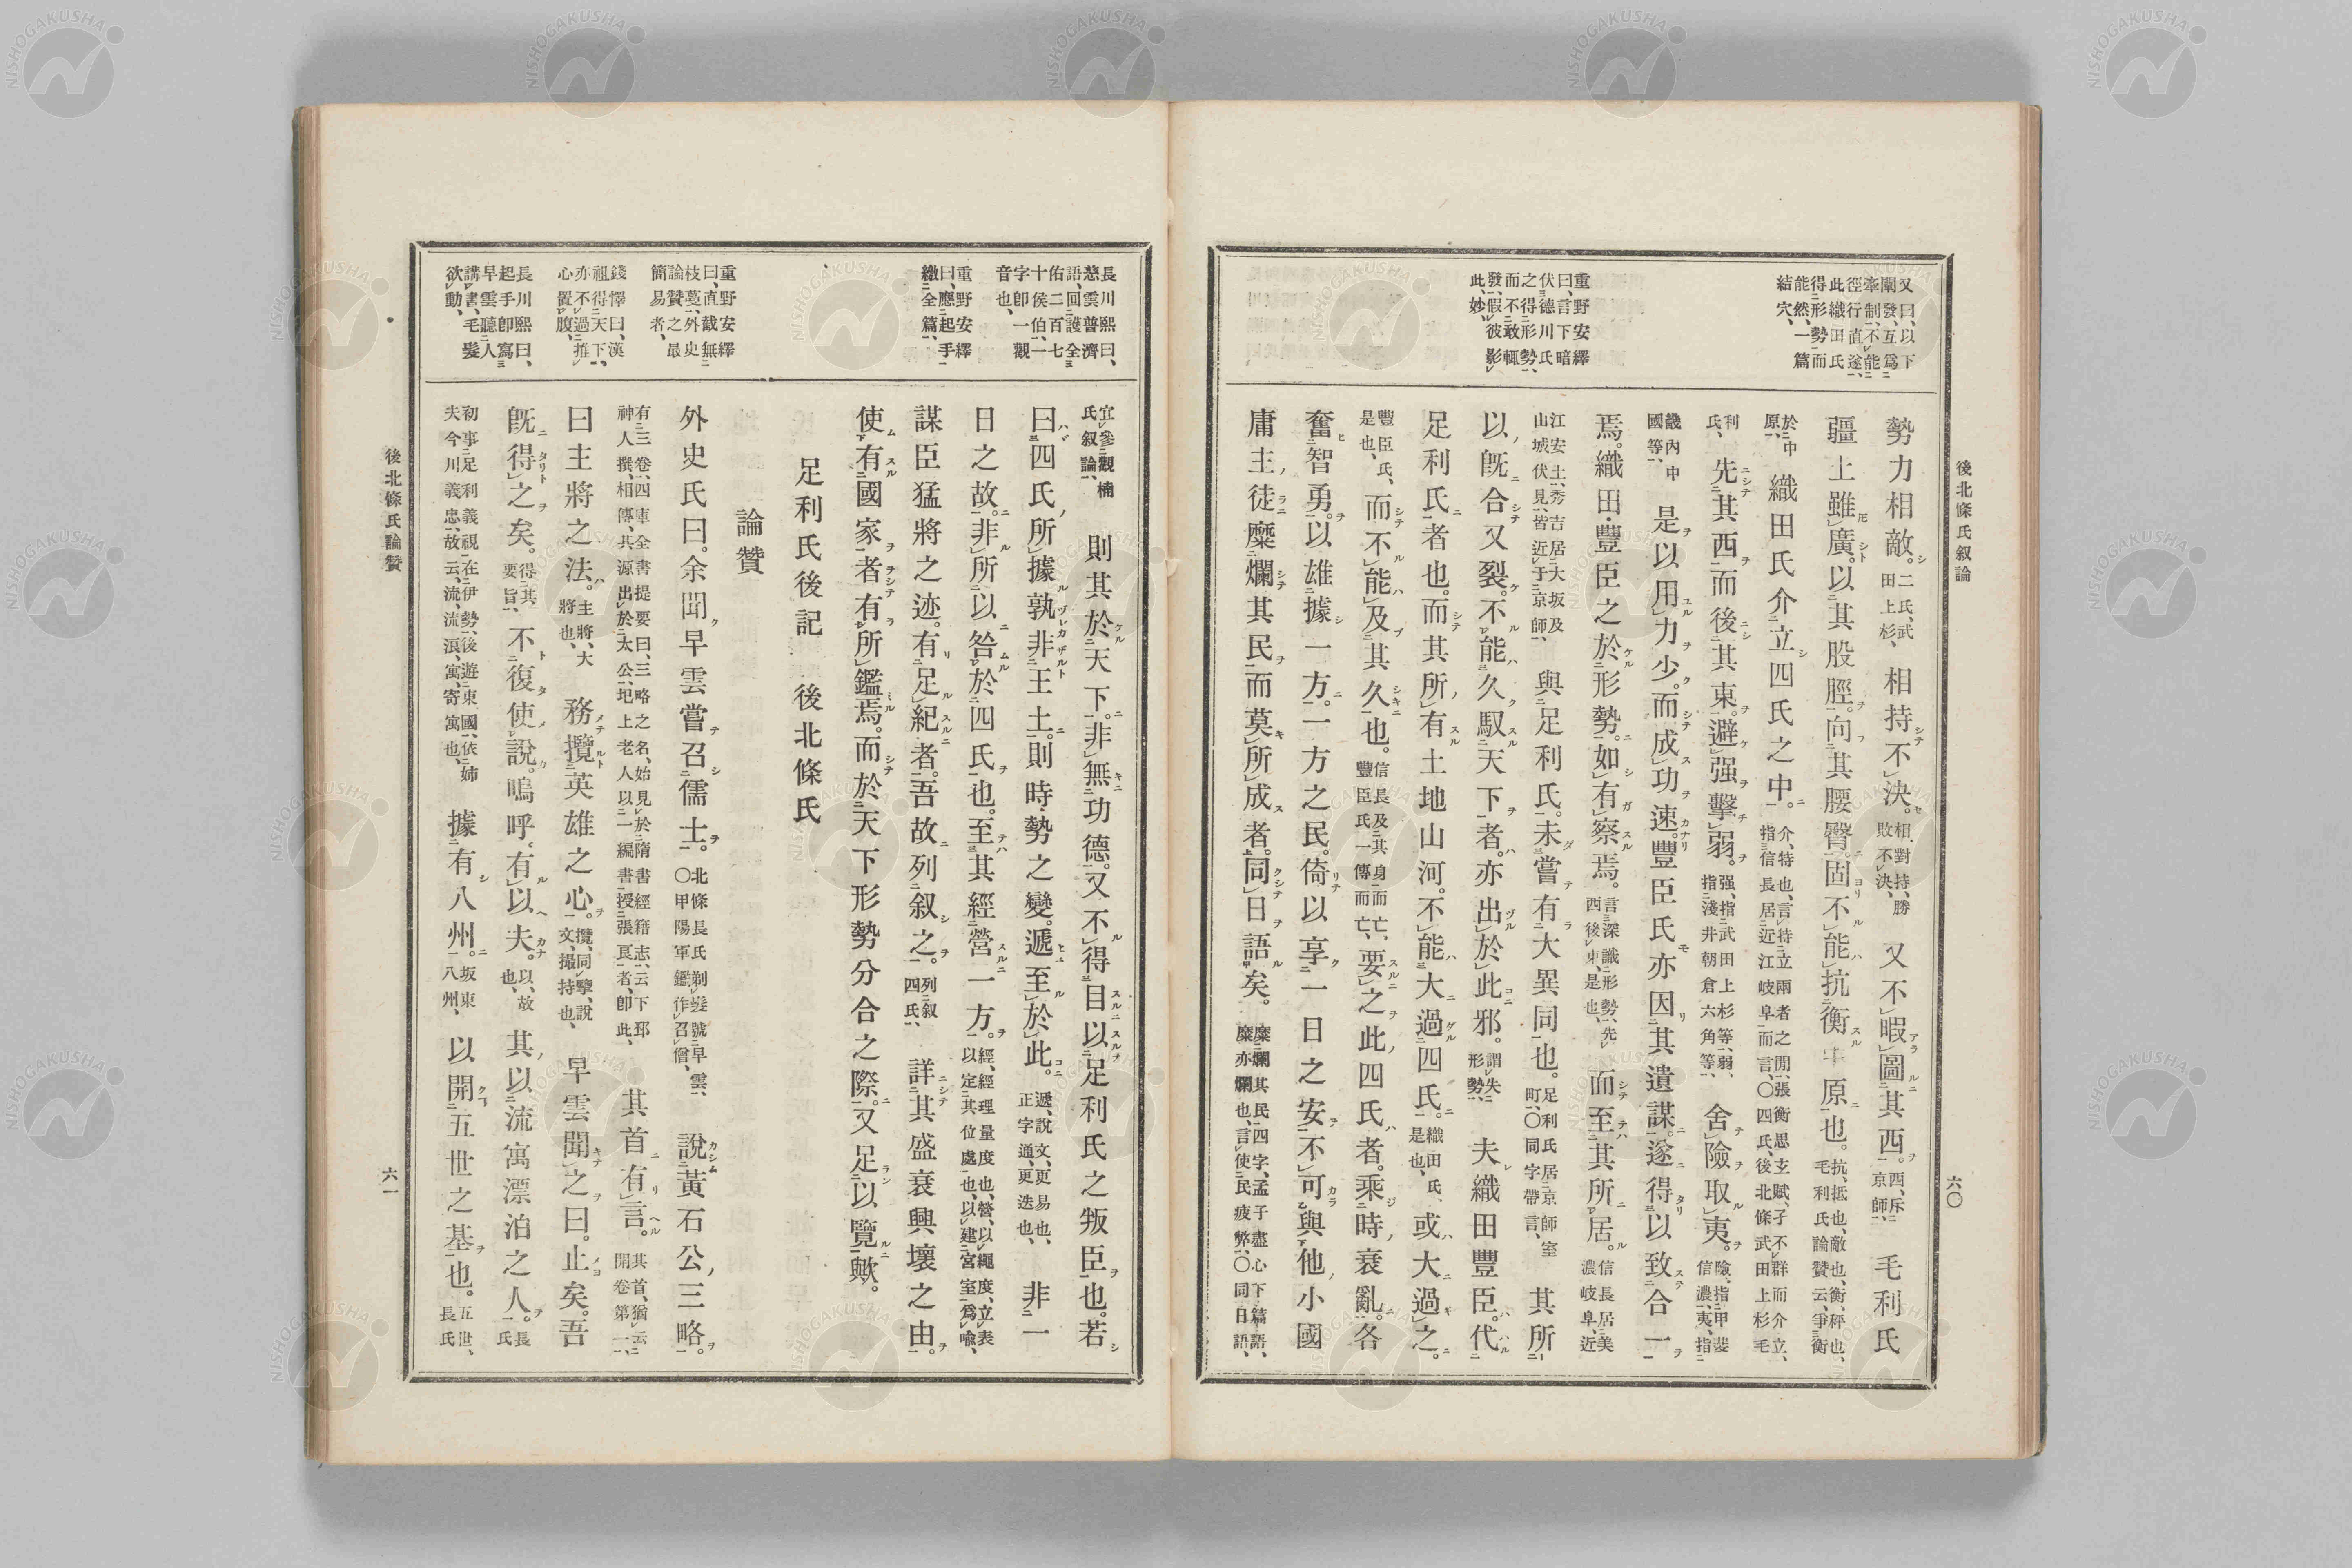 後北條氏叙論
六〇
又曰、以下
闡發、互爲
牽制、不能
徑行直遂、
此織田氏
得形勢而
能然、一篇
結穴、
重野安繹
曰、言下暗
伏德川氏
之得形勢、
而不敢輒
發、假彼影
此、妙、
勢力相敵。二氏、武田上杉、相持不決。相對持、勝敗不決、又不暇圖其西。西、斥京師、毛利氏
疆土雖廣。以其股脛。向其腰臀。固不能抗衡中原也。抗、抵也、敵也、衡、秤也、毛利氏論贊云、爭衡
於中原、織田氏介立四氏之中。介、特也、言特立兩者之間、張衡思玄賦、孑不群而介立、指信長居近江岐阜而言、〇四氏、後北條武田上杉毛
利氏、先其西。而後其東。避强擊弱。强、指武田上杉等、弱、指淺井朝倉六角等、舍險取夷。險、指甲斐信濃、夷、指
畿內中國等、是以用力少。而成功速。豐臣氏亦因其遺謀。遂得以致合一
焉。織田・豐臣之於形勢。如有察焉。言深識形勢、先西後東、是也、而至其所居。信長居美濃岐阜、近
江安土、秀吉居大坂及山城伏見、皆近于京師、與足利氏。未嘗有大異同也。足利氏居京師室町、〇同字帶言、其所
以既合又裂。不能久馭天下者。亦出於此邪。謂失形勢、夫織田豐臣。代
足利氏者也。而其所有土地山河。不能大過四氏。織田氏、是也、或大過之。
豐臣氏、是也、而不能及其久也。信長及其身而亡、豐臣氏一傳而亡、要之此四氏者。乘時衰亂。各
奮智勇。以雄據一方。一方之民。倚以享一日之安。不可與他小國
庸主徒糜爛其民。而莫所成者。同日語矣。糜爛其民四字、孟子盡心下篇語、糜亦爛也、言使民疲弊、〇同日語、
長川熙曰、
慈雲普濟
語、回護全
佑二百七
十侯伯、一
字卽一觀
音也、
重野安繹
曰、應起手
繳全篇、
重野安繹
曰、直截無
枝蔓、外史
論贊之最
簡易者、
錢懌曰、漢
祖得天下、
亦不過推
心置腹、
長川熙曰、
起手卽寫
早雲聽人
講書、毛髮
欲動、
宜參觀楠氏叙論、則其於天下。非無功德。又不得目以足利氏之叛臣也。若
曰四氏所據孰非王土。則時勢之變。遞至於此。遞、說文、更易也、正字通、更迭也、非一
日之故。非所以咎於四氏也。至其經營一方。經、經理量度也、營、以繩度、立表以定其位處也、以建宮室爲喩、
謀臣猛將之迹。有足紀者。吾故列叙之。列叙四氏、詳其盛衰興壞之由。
使有國家者有所鑑焉。而於天下形勢分合之際。又足以覽歟。
足利氏後記　後北條氏
論贊
外史氏曰。余聞早雲嘗召儒士。〇北條長氏剃髮號早雲、甲陽軍鑑作召僧、說黃石公三略。
有三卷、四庫全書提要曰、三略之名、始見於隋書經籍志、云下邳神人撰、相傳、其源出於太公、圯上老人以一編書授張良者、卽此、其首有言。其首、猶云開卷第一、
曰主將之法。主將、大將也、務攬英雄之心。攬、同擥、說文、撮持也、早雲聞之曰。止矣。吾
既得之矣。得其要旨、不復使說。嗚呼。有以夫。以、故也、其以流寓漂泊之人。長氏
初事足利義視在伊勢、後遊東國、依姉夫今川義忠、故云、流、流浪、寓、寄寓也、據有八州。坂東八州、以開五世之基也。五世、長氏
後北條氏論贊
六一